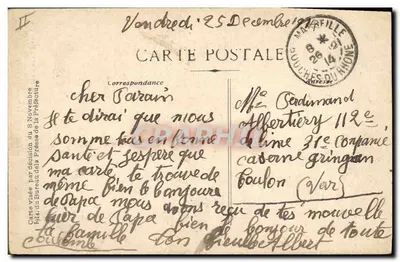 II
Vendredi 25 Decembre
MARSEILLE
14
BOUCHES DU RHONE
CARTE POSTALE
Correspondance
cher Parain
Je te dirai que nous
somme tus en bonne
sante et j'espere que
ma carte te trouve de
même bien le bonjoure
de Papa nous avons reçu de tes nouvelle
de Papa bien le bonjour de toute
la famille
Ton Albert
Mr Ferdinand
Albertiery 112e
de line 31e Compagnie
caserne gringan
Toulon (Var)
Carte visée par décision du 8 Novembre
Bureau de la Presse de la Préfecture